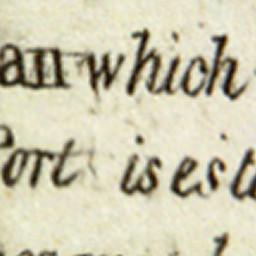 an which
Port is est